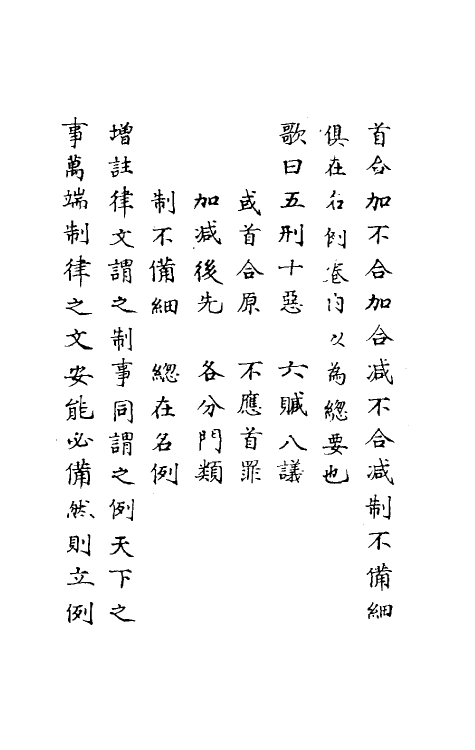 首合加不合加合減不合減制不備細
俱在名例卷內以為緫要也
歌曰五刑十惡　六贓八議
或首合原　不應首罪
加減後先　各分門類
制不備細　緫在名例
增註律文謂之制事同謂之例天下之
事萬端制律之文安能必備然則立例